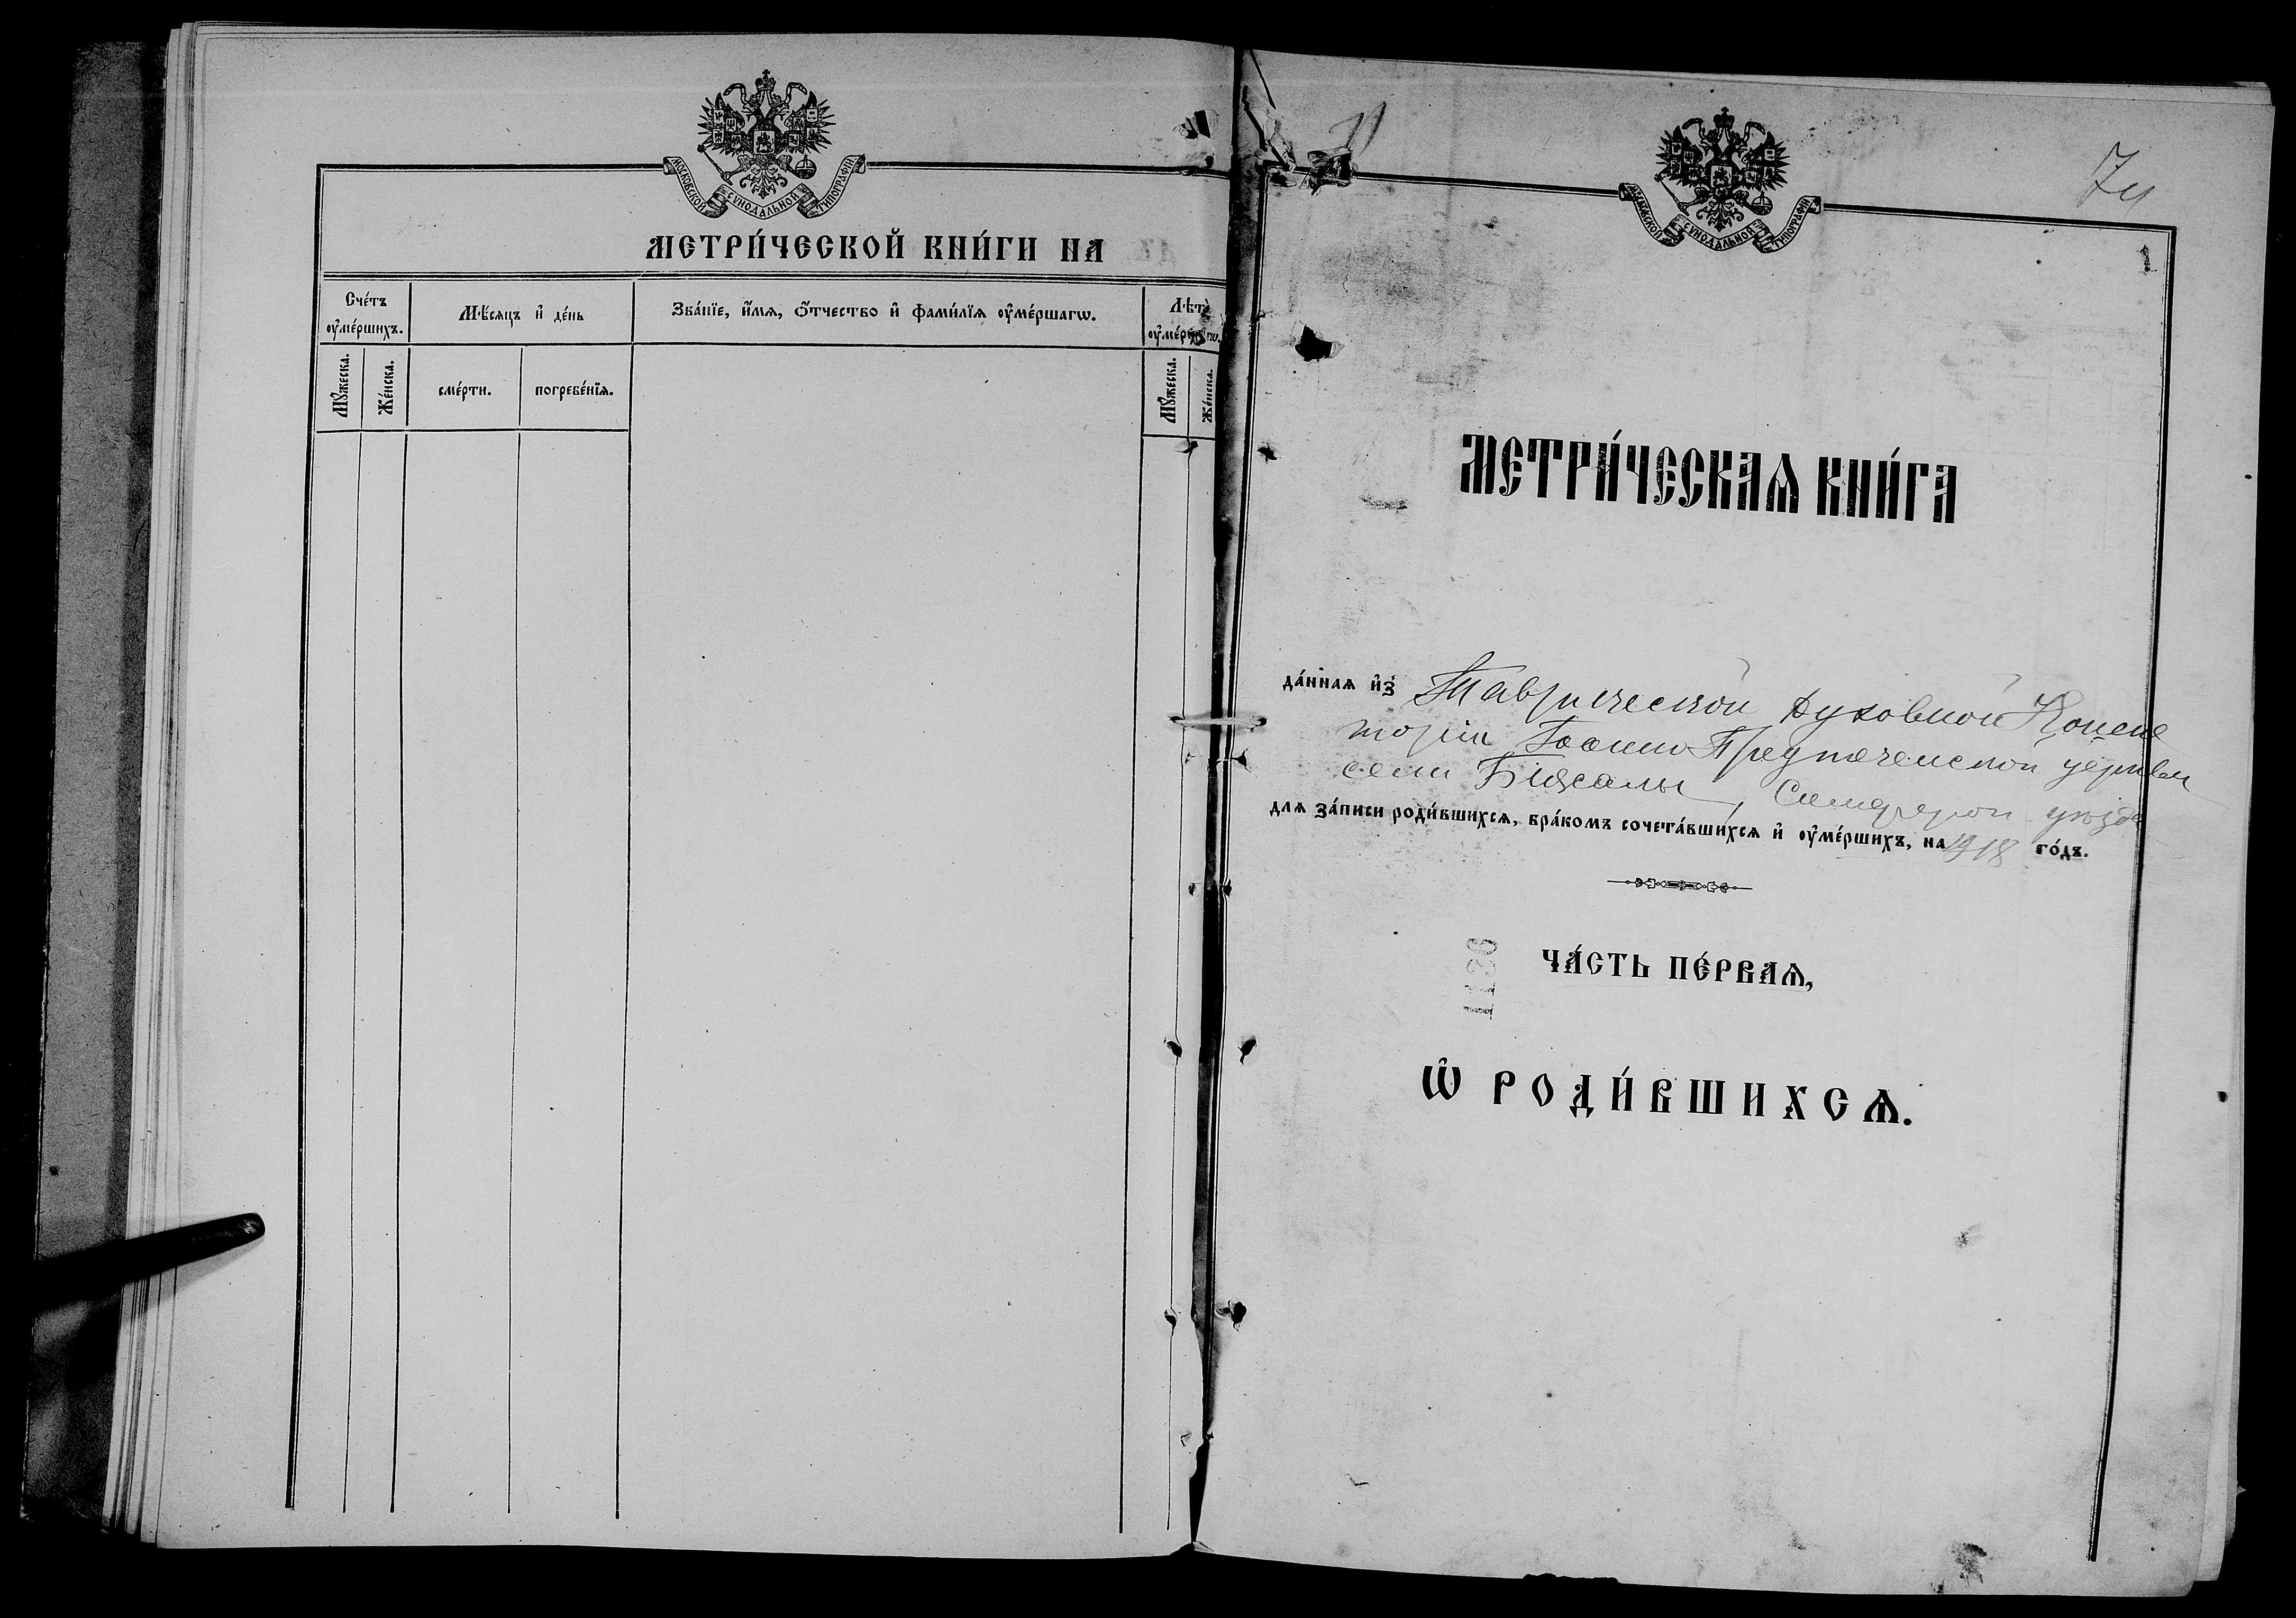 МОСКОВСКОЙ СѴНОДАЛЬНОЙ ТИПОГРАФІИ
МЕТРИ́ЧЕСКОЙ КНИ́ГИ НА
Сче́тъ ᲂу҆ме́ршихъ.
Мѣ́сяцъ и҆ де́нь
Зва́нїе, и҆́мѧ, ѻ҆́тчество и҆ фами́лїѧ ᲂу҆ме́ршагѡ.
Лѣ́та
Мꙋ́жеска.
Же́нска.
сме́рти.
погребе́нїѧ.
Мꙋ́жеска.
Же́нска.
МОСКОВСКОЙ СѴНОДАЛЬНОЙ ТИПОГРАФІИ
1
МЕТРИ́ЧЕСКАѦ КНИ́ГА
да́ннаѧ и҆з̾ Таврической Духовной Консис
торіи Іоанно-Предтеченской церкви
села Біасалы, Симфероп уѣзда
длѧ за́писи роди́вшихсѧ, бра́комъ сочета́вшихсѧ и҆ ᲂу҆ме́ршихъ, на 1918 го́дъ.
1136
ЧА́СТЬ ПЕ́РВАѦ,
Ѡ҆ РОДИ́ВШИХСѦ.